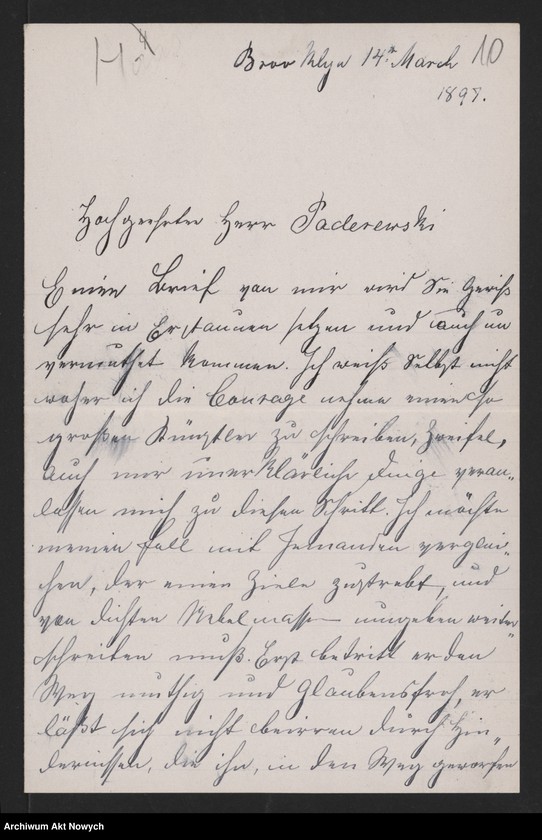 10
Brooklyn 14th March
1898.
Hochgeehrter Herr Paderewski
Einen Brief von mir wird Sie Gewiß
sehr in Erstaunen setzen und auch un
vermuthet kommen. Ich weiß Selbst nicht
woher ich die Courage nehme einen so
großen Künstler zu schreiben, Zweifel,
auch mir unerklärliche Dinge veran„
lassen mich zu diesen Schritt. Ich möchte
meinen Fall mit Jemanden verglei„
chen, der einen Ziele zustrebt, und
von dichten Nebelmassen umgeben weiter
schreiten muß. Erst betritt er den
Weg muthig und Glaubensfroh, er
läßt sich nicht beirren durch Hin„
dernissen, die ihn, in den Weg geworfen
Archiwum Akt Nowych